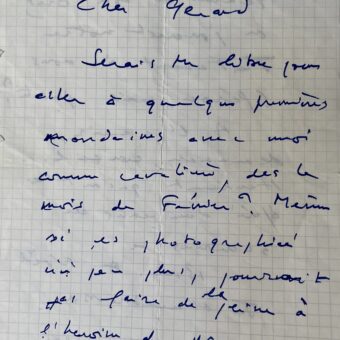 Cher Gérard
Serais tu libre pour
aller à quelques premières
mondaines avec moi
comme cavalière, dès le
mois de Février ? Même
si, es photographiée
un peu plus, pourrait
pas faire de la peine à
l'héroïne